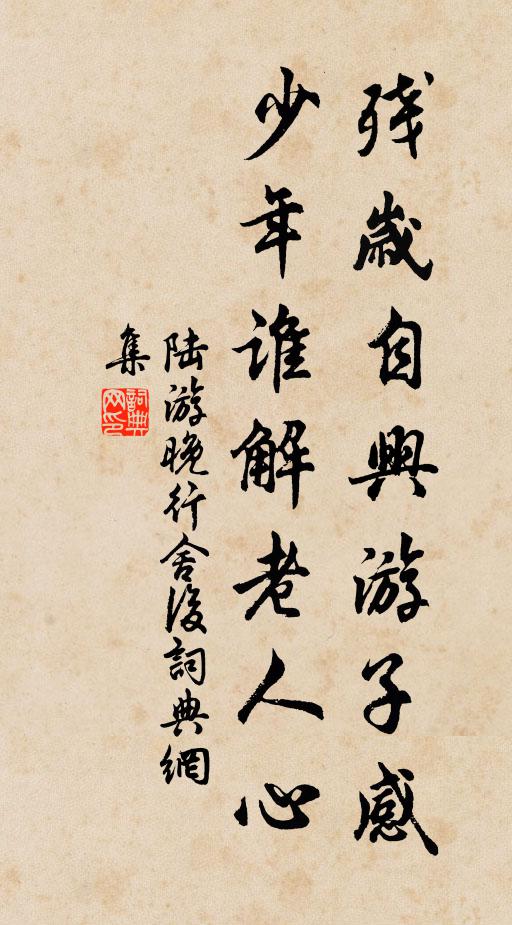 残歲自興游子感
少年誰解老人心
陆游晚行舍後詞典網
集
詞典
网印